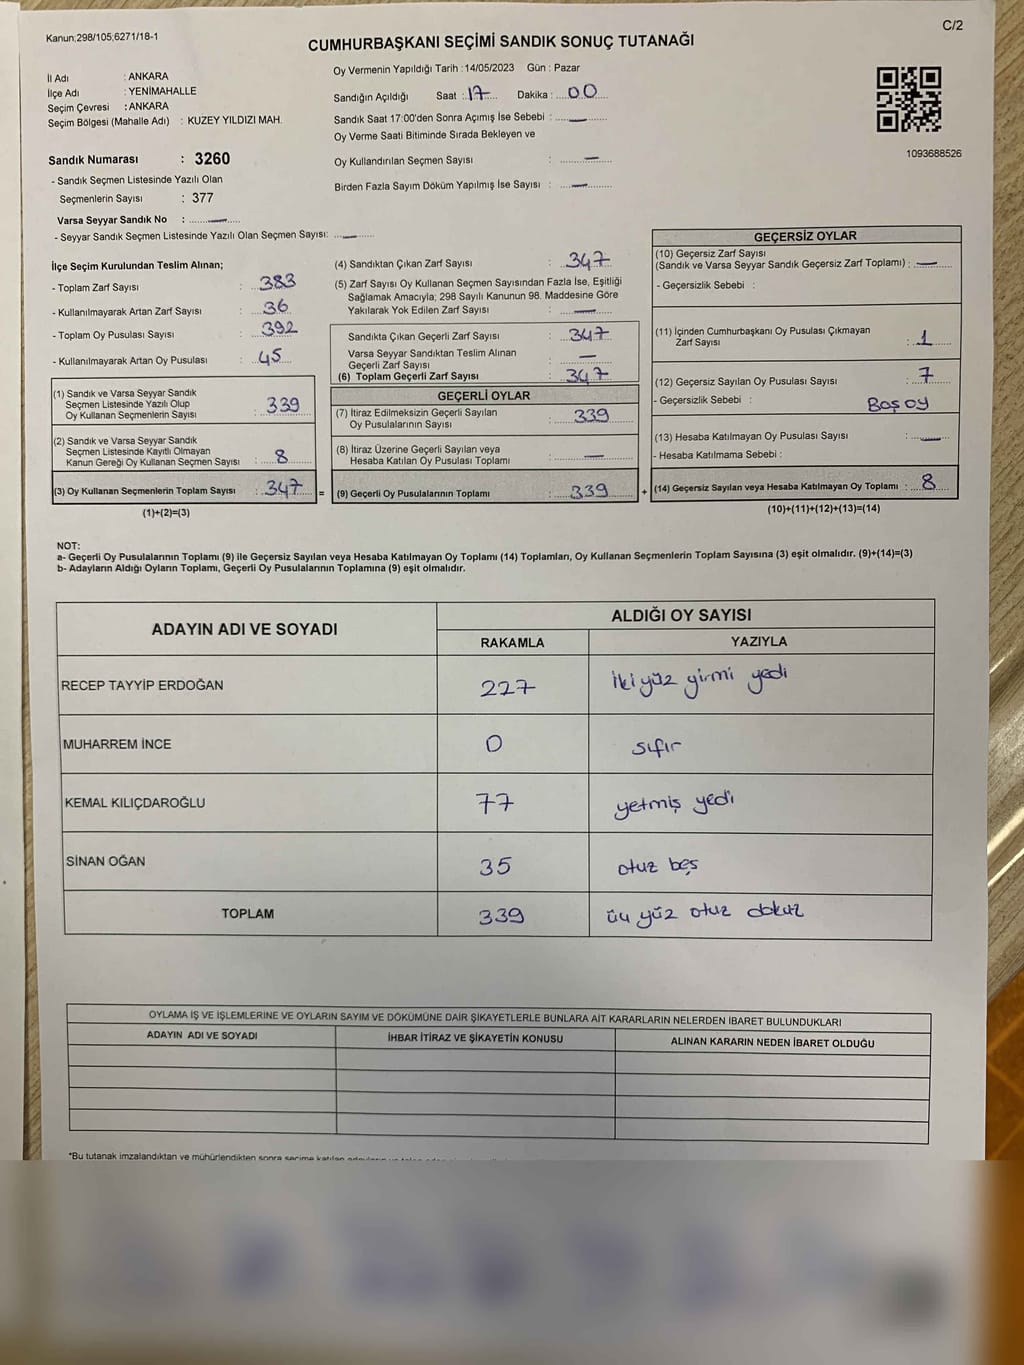 Kanun;298/105;6271/18-1
C/2
CUMHURBAŞKANI SEÇİMİ SANDIK SONUÇ TUTANAĞI
İl Adı : ANKARA
İlçe Adı : YENİMAHALLE
Seçim Çevresi : ANKARA
Seçim Bölgesi (Mahalle Adı) : KUZEY YILDIZI MAH.
Oy Vermenin Yapıldığı Tarih :14/05/2023 Gün : Pazar
Sandığın Açıldığı Saat : 17 Dakika : 00
Sandık Saat 17:00'den Sonra Açımış İse Sebebi : —
Oy Verme Saati Bitiminde Sırada Bekleyen ve
Oy Kullandırılan Seçmen Sayısı : —
Birden Fazla Sayım Döküm Yapılmış İse Sayısı : —
1093688526
Sandık Numarası : 3260
- Sandık Seçmen Listesinde Yazılı Olan
Seçmenlerin Sayısı : 377
Varsa Seyyar Sandık No : —
- Seyyar Sandık Seçmen Listesinde Yazılı Olan Seçmen Sayısı: —
İlçe Seçim Kurulundan Teslim Alınan;
- Toplam Zarf Sayısı : 383
- Kullanılmayarak Artan Zarf Sayısı : 36
- Toplam Oy Pusulası Sayısı : 392
- Kullanılmayarak Artan Oy Pusulası : 45
(1) Sandık ve Varsa Seyyar Sandık
Seçmen Listesinde Yazılı Olup
Oy Kullanan Seçmenlerin Sayısı : 339
(2) Sandık ve Varsa Seyyar Sandık
Seçmen Listesinde Kayıtlı Olmayan
Kanun Gereği Oy Kullanan Seçmen Sayısı : 8
(3) Oy Kullanan Seçmenlerin Toplam Sayısı : 347 =
(1)+(2)=(3)
(4) Sandıktan Çıkan Zarf Sayısı : 347
(5) Zarf Sayısı Oy Kullanan Seçmen Sayısından Fazla İse, Eşitliği
Sağlamak Amacıyla; 298 Sayılı Kanunun 98. Maddesine Göre
Yakılarak Yok Edilen Zarf Sayısı : —
Sandıkta Çıkan Geçerli Zarf Sayısı : 347
Varsa Seyyar Sandıktan Teslim Alınan
Geçerli Zarf Sayısı : —
(6) Toplam Geçerli Zarf Sayısı : 347
GEÇERLİ OYLAR
(7) İtiraz Edilmeksizin Geçerli Sayılan
Oy Pusulalarının Sayısı : 339
(8) İtiraz Üzerine Geçerli Sayılan veya
Hesaba Katılan Oy Pusulası Toplamı : —
(9) Geçerli Oy Pusulalarının Toplamı : 339 +
GEÇERSİZ OYLAR
(10) Geçersiz Zarf Sayısı
(Sandık ve Varsa Seyyar Sandık Geçersiz Zarf Toplamı) : —
- Geçersizlik Sebebi :
(11) İçinden Cumhurbaşkanı Oy Pusulası Çıkmayan
Zarf Sayısı : 1
(12) Geçersiz Sayılan Oy Pusulası Sayısı : 7
- Geçersizlik Sebebi : Boş oy
(13) Hesaba Katılmayan Oy Pusulası Sayısı : —
- Hesaba Katılmama Sebebi :
(14) Geçersiz Sayılan veya Hesaba Katılmayan Oy Toplamı : 8
(10)+(11)+(12)+(13)=(14)
NOT:
a- Geçerli Oy Pusulalarının Toplamı (9) ile Geçersiz Sayılan veya Hesaba Katılmayan Oy Toplamı (14) Toplamları, Oy Kullanan Seçmenlerin Toplam Sayısına (3) eşit olmalıdır. (9)+(14)=(3)
b- Adayların Aldığı Oyların Toplamı, Geçerli Oy Pusulalarının Toplamına (9) eşit olmalıdır.
ADAYIN ADI VE SOYADI
ALDIĞI OY SAYISI
RAKAMLA YAZIYLA
RECEP TAYYİP ERDOĞAN 227 iki yüz yirmi yedi
MUHARREM İNCE 0 sıfır
KEMAL KILIÇDAROĞLU 77 yetmiş yedi
SİNAN OĞAN 35 otuz beş
TOPLAM 339 üç yüz otuz dokuz
OYLAMA İŞ VE İŞLEMLERİNE VE OYLARIN SAYIM VE DÖKÜMÜNE DAİR ŞİKAYETLERLE BUNLARA AİT KARARLARIN NELERDEN İBARET BULUNDUKLARI
ADAYIN ADI VE SOYADI İHBAR İTİRAZ VE ŞİKAYETİN KONUSU ALINAN KARARIN NEDEN İBARET OLDUĞU
*Bu tutanak imzalandıktan ve mühürlendikten sonra seçime katılan